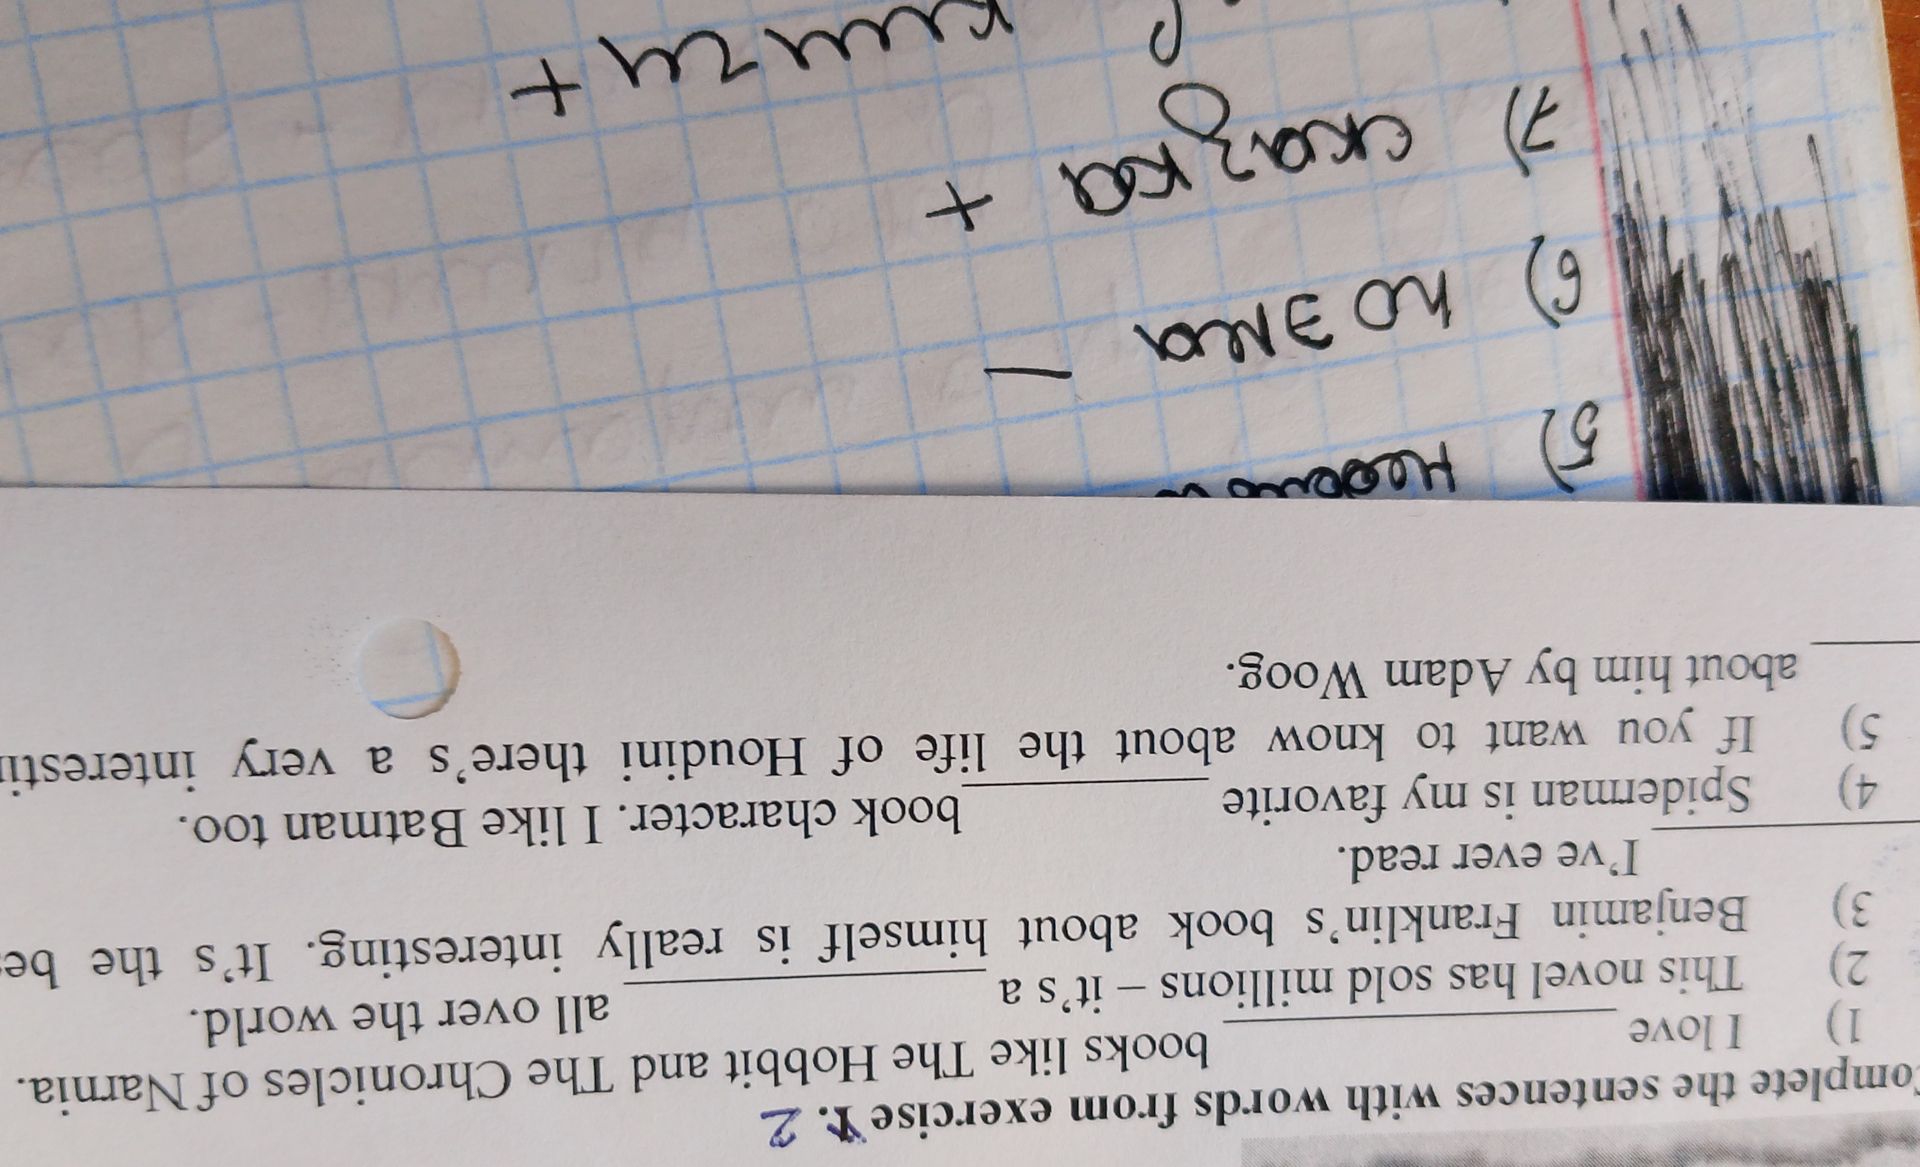 omplete the sentences with words from exercise 1. 2
1) I love ________ books like The Hobbit and The Chronicles of Narnia.
2) This novel has sold millions – it's a ________ all over the world.
3) Benjamin Franklin's book about himself is really interesting. It's the be
________ I've ever read.
4) Spiderman is my favorite ________ book character. I like Batman too.
5) If you want to know about the life of Houdini there's a very interesti
________ about him by Adam Woog.
5)
6) поэма –
7) сказка +
+